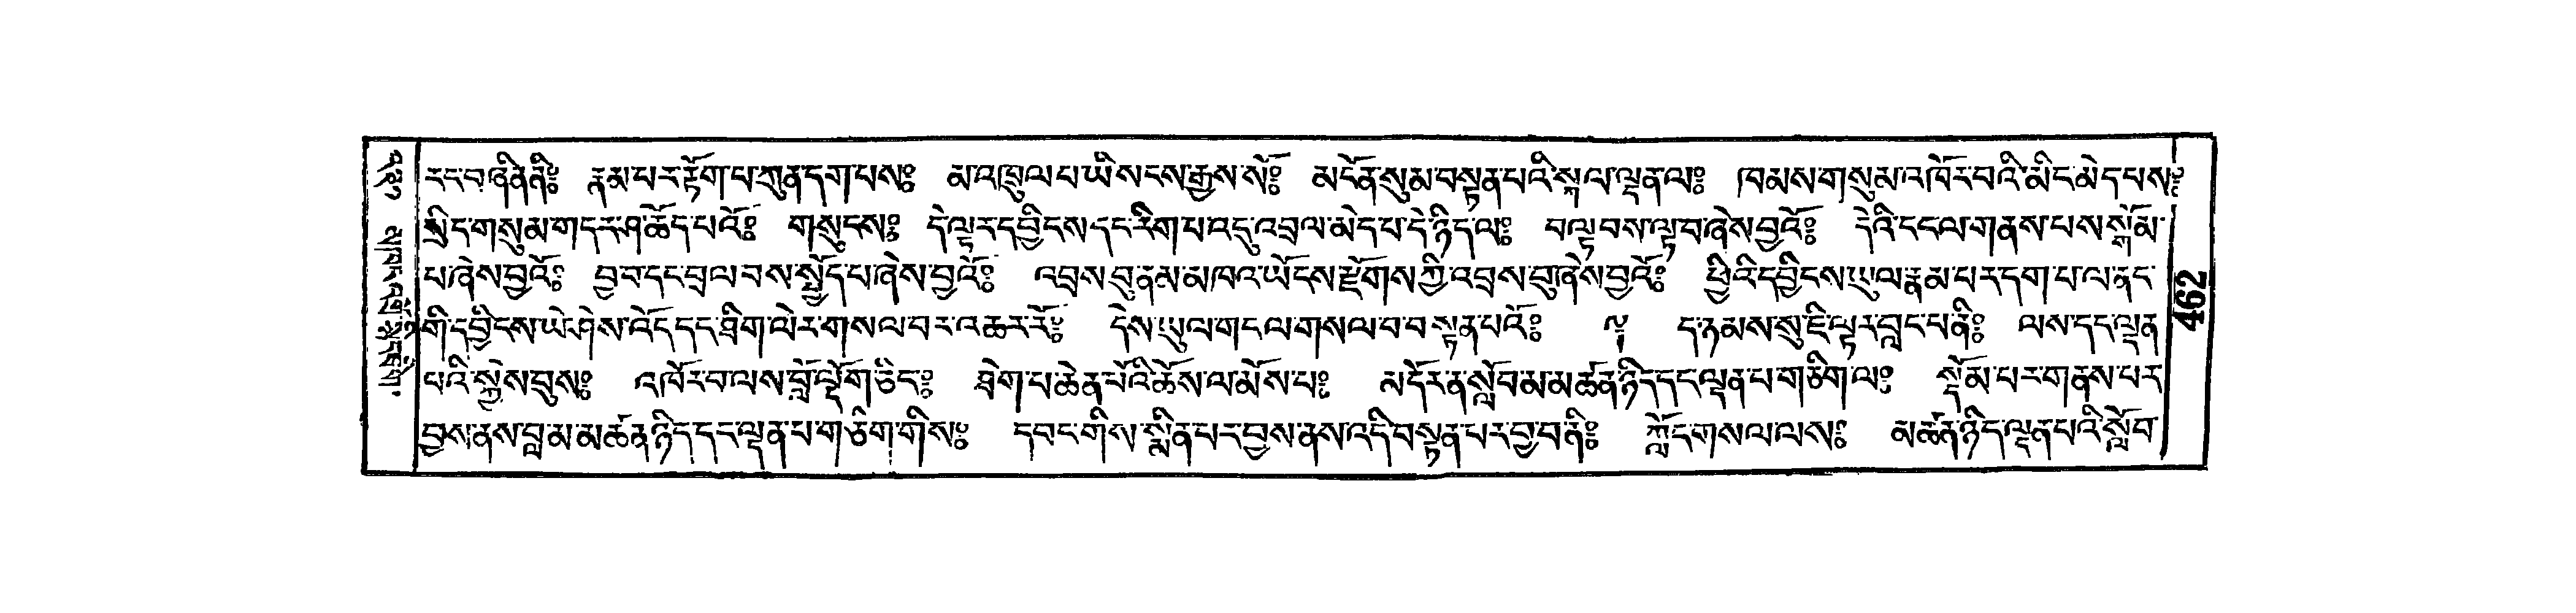 རང་བཞིན་ནི༔ རྣམ་པར་རྟོག་པ་ཀུན་དག་པས༔ མ་འཁྲུལ་པ་ཡིས་ངས་རྒྱས་སོ༔ མངོན་སུམ་བསྟན་པའི་སྐལ་ལྡན་ལ༔ ཁམས་གསུམ་འཁོར་བའི་མིང་མེད་པས༔
སྲིད་གསུམ་གདར་ཤ་ཆོད་པའོ༔ གསུངས༔ དེ་ལྟར་དབྱིངས་དང་རིག་པ་འདུ་འབྲལ་མེད་པ་དེ་ཉིད་ལ༔ བལྟ་བས་ལྟ་བ་ཞེས་བྱའོ༔ དེའི་ངང་ལ་གནས་པས་སྒོམ་
པ་ཞེས་བྱའོ༔ བྱ་བ་དང་བྲལ་བས་སྤྱོད་པ་ཞེས་བྱའོ༔ འབྲས་བུ་ནམ་མཁའ་ཡོངས་རྫོགས་ཀྱི་འབྲས་བུ་ཞེས་བྱའོ༔ ཕྱིའི་དབྱིངས་ཡུལ་རྣམ་པར་དག་པ་ལ་ནང་
གི་དབྱིངས་ཡེ་ཤེས་འོད་དང་ཐིག་ལེར་གསལ་བར་འཆར་རོ༔ དེས་ཡུལ་གང་ལ་གསལ་བ་བསྟན་པའོ༔ ༈ ད་ཉམས་སུ་ཇི་ལྟར་བླང་པ་ནི༔ ལས་དང་ལྡན་
པའི་སྐྱེས་བུས༔ འཁོར་བ་ལས་བློ་ལྡོག་ཅིང༔ ཐེག་པ་ཆེན་པོའི་ཆོས་ལ་མོས་པ༔ མདོར་ན་སློབ་མ་མཚན་ཉིད་དང་ལྡན་པ་གཅིག་ལ༔ སྡོམ་པར་གནས་པར་
བྱས་ནས་བླ་མ་མཚན་ཉིད་དང་ལྡན་པ་གཅིག་གིས༔ དབང་གིས་སྨིན་པར་བྱས་ནས་འདི་བསྟན་པར་བྱ་བ་ནི༔ ཀློང་གསལ་ལས༔ མཚན་ཉིད་ལྡན་པའི་སློབ་
462